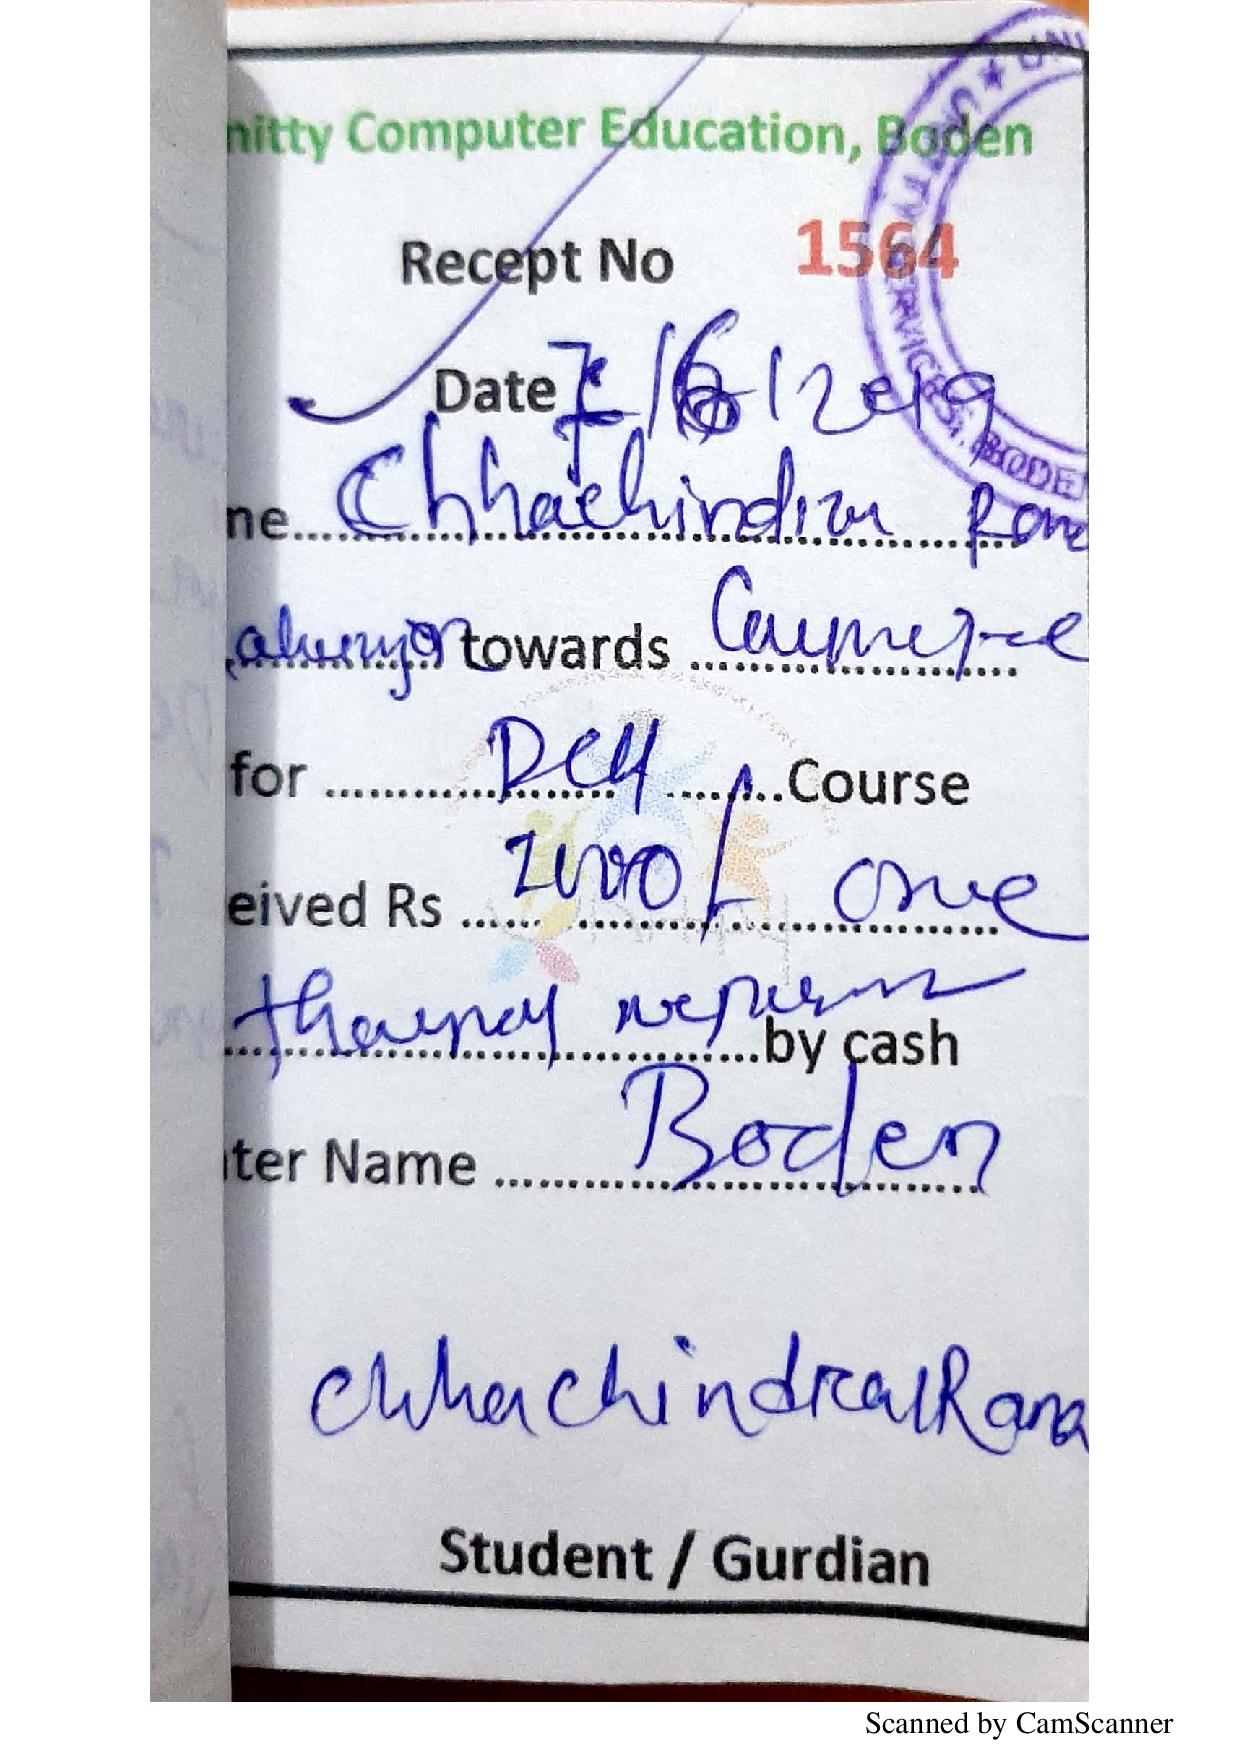 nitty Computer Education, Boden
Recept No 1564
Date 7/6/2019
ne.......Chhachindra Rana
towards
for ........ DCA ........Course
eived Rs ...... 1000/- one
thousand rupees ...by cash
nter Name ........ Boden
Chhachindra Rana
Student / Gurdian
SERVICES, BODEN
Scanned by CamScanner